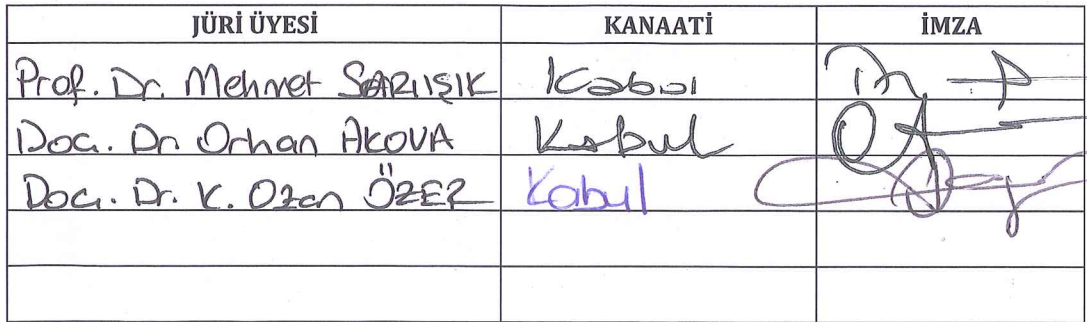 JÜRİ ÜYESİ KANAATİ İMZA
Prof. Dr. Mehmet SARIIŞIK Kabul
Doç. Dr. Orhan AKOVA Kabul
Doç. Dr. K. Ozan ÖZER Kabul